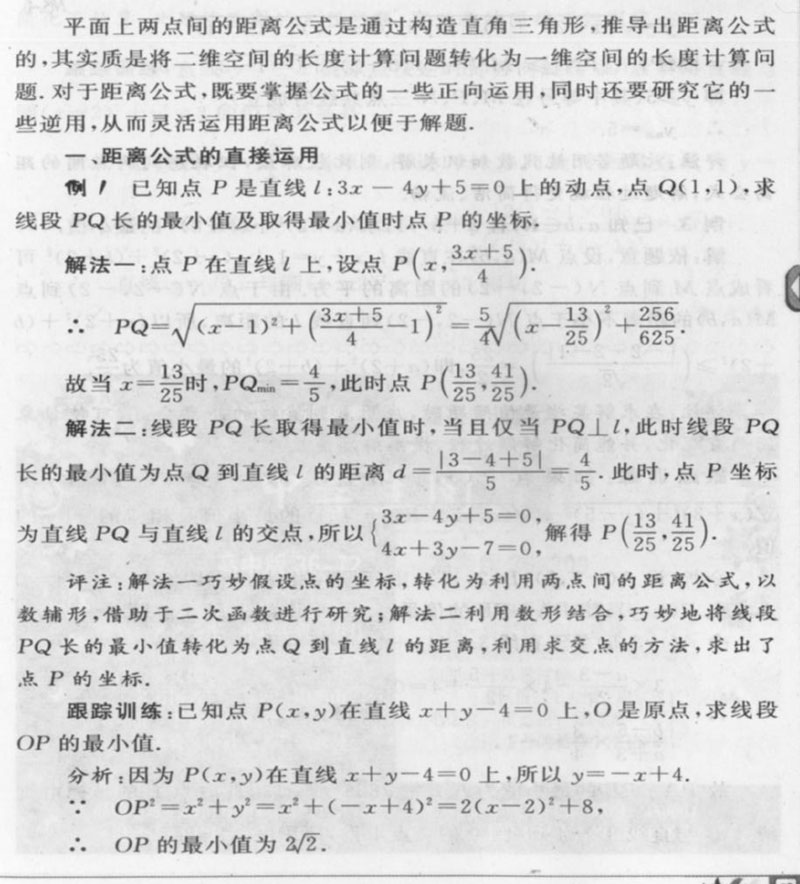 平面上两点间的距离公式是通过构造直角三角形,推导出距离公式
的,其实质是将二维空间的长度计算问题转化为一维空间的长度计算问
题.对于距离公式,既要掌握公式的一些正向运用,同时还要研究它的一
些逆用,从而灵活运用距离公式以便于解题.
一、距离公式的直接运用
例1 已知点 P 是直线 l:3x-4y+5=0 上的动点,点 Q(1,1),求
线段 PQ 长的最小值及取得最小值时点 P 的坐标.
解法一:点 P 在直线 l 上,设点 P(x,(3x+5)/4).
∴ PQ=√((x-1)²+((3x+5)/4-1)²)=5/4√((x-13/25)²+256/625).
故当 x=13/25时,PQmin=4/5,此时点 P(13/25,41/25).
解法二:线段 PQ 长取得最小值时,当且仅当 PQ⊥l,此时线段 PQ
长的最小值为点 Q 到直线 l 的距离 d=|3-4+5|/5=4/5.此时,点 P 坐标
为直线 PQ 与直线 l 的交点,所以{3x-4y+5=0, 4x+3y-7=0,解得 P(13/25,41/25).
评注:解法一巧妙假设点的坐标,转化为利用两点间的距离公式,以
数辅形,借助于二次函数进行研究;解法二利用数形结合,巧妙地将线段
PQ 长的最小值转化为点 Q 到直线 l 的距离,利用求交点的方法,求出了
点 P 的坐标.
跟踪训练:已知点 P(x,y)在直线 x+y-4=0 上,O 是原点,求线段
OP 的最小值.
分析:因为 P(x,y)在直线 x+y-4=0 上,所以 y=-x+4.
∵ OP²=x²+y²=x²+(-x+4)²=2(x-2)²+8,
∴ OP 的最小值为 2√2.